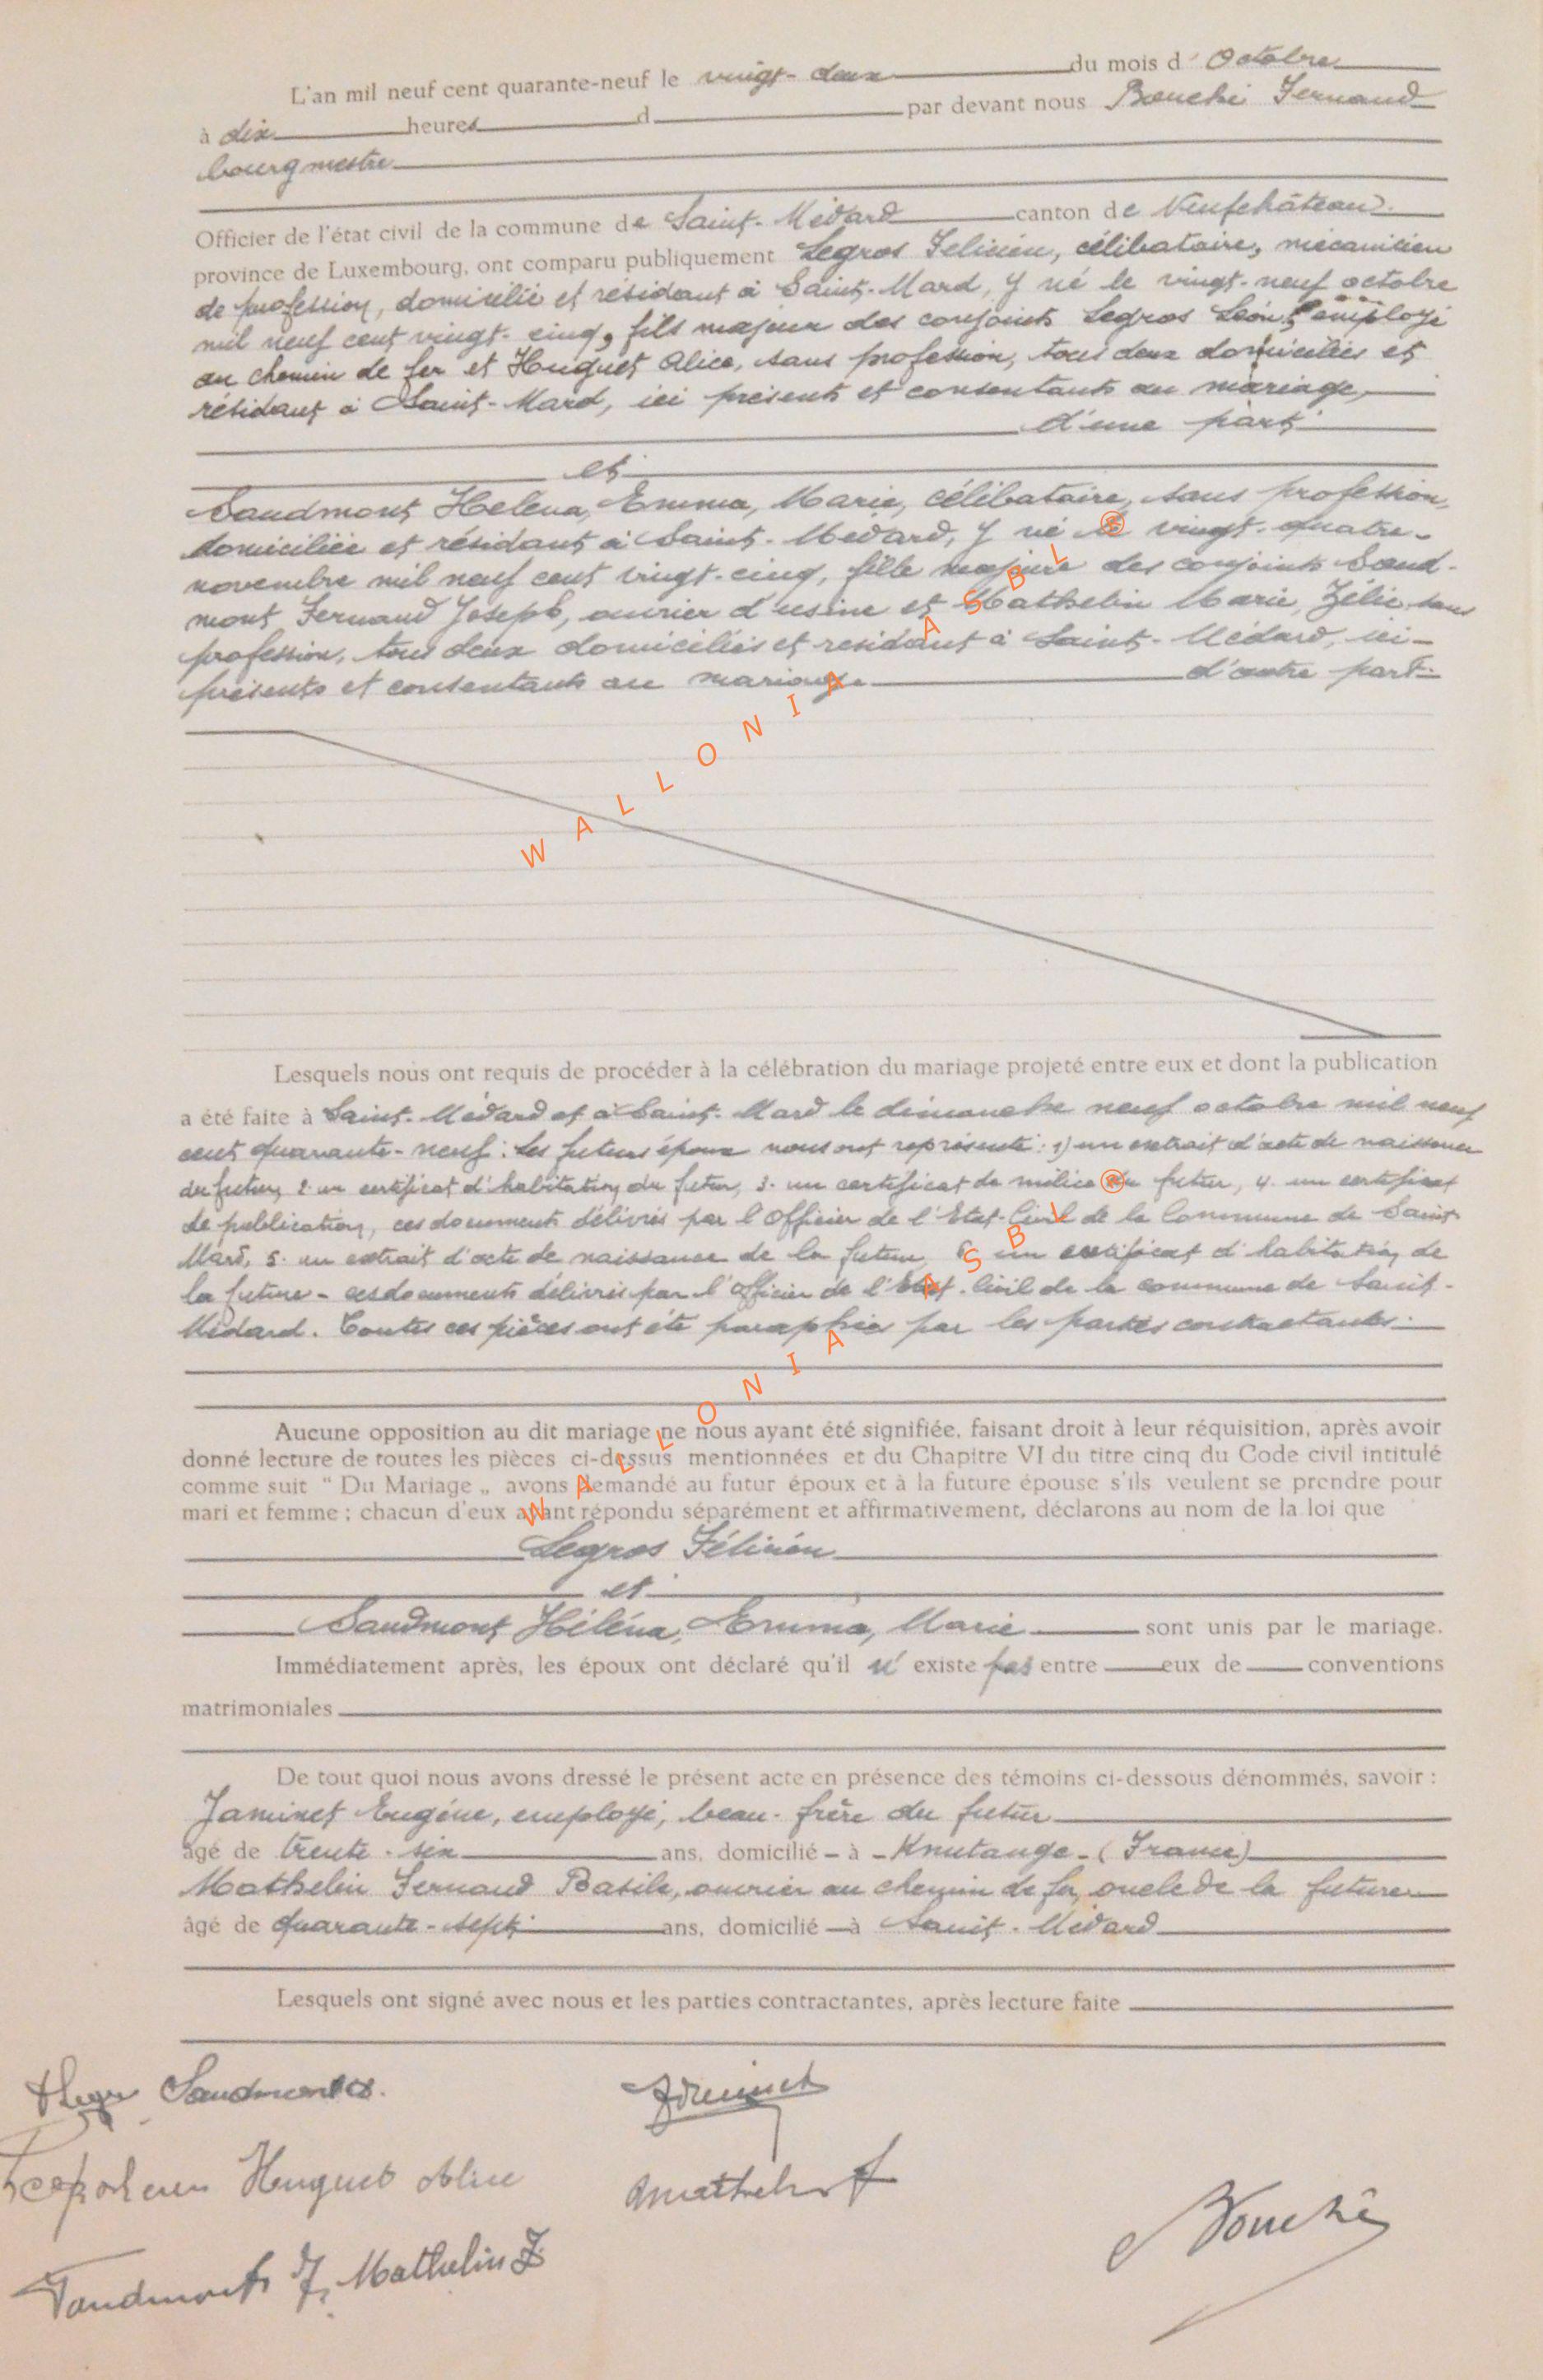 L'an mil neuf cent quarante-neuf le vingt-deux du mois d'Octobre
à dix heures d par devant nous Bouché Fernand
bourgmestre
Officier de l'état civil de la commune de Saint-Médard canton de Neufchâteau
province de Luxembourg, ont comparu publiquement Legros Félicien, célibataire, mécanicien
de profession, domicilié et résidant à Saint-Mard, y né le vingt-neuf octobre
mil neuf cent vingt-cinq, fils majeur des conjoints Legros Léon, employé
au chemin de fer et Huguet Alice, sans profession, tous deux domiciliés et
résidant à Saint-Mard, ici présents et consentants au mariage,
d'une part.
et
Saudmont Héléna, Emma, Marie, célibataire, sans profession,
domiciliée et résidant à Saint-Médard, y né le vingt-quatre
novembre mil neuf cent vingt-cinq, fille majeure des conjoints Saud-
mont Fernand Joseph, ouvrier d'usine et Mathelin Marie, Zélie sans
profession, tous deux domiciliés et residant à Saint-Médard, ici
présents et consentants au mariage d'autre part.
WALLONIA ASBL ®
Lesquels nous ont requis de procéder à la célébration du mariage projeté entre eux et dont la publication
a été faite à Saint-Médard et à Saint-Mard le dimanche neuf octobre mil neuf
cent quarante-neuf : Les futurs époux nous ont représenté : 1) un extrait d'acte de naissance
du futur, 2. un certificat d'habitation du futur, 3. un certificat de milice du futur, 4. un certificat
de publication, ces documents délivrés par l'Officier de l'Etat-Civil de la Commune de Saint-
Mard, 5. un extrait d'acte de naissance de la future, 6. un certificat d'habitation de
la future - ces documents délivrés par l'Officier de l'Etat-Civil de la commune de Saint-
Médard. Toutes ces pièces ont été paraphées par les parties contractantes.
Aucune opposition au dit mariage ne nous ayant été signifiée, faisant droit à leur réquisition, après avoir
donné lecture de toutes les pièces ci-dessus mentionnées et du Chapitre VI du titre cinq du Code civil intitulé
comme suit " Du Mariage „ avons demandé au futur époux et à la future épouse s'ils veulent se prendre pour
mari et femme ; chacun d'eux ayant répondu séparément et affirmativement, déclarons au nom de la loi que
WALLONIA ASBL ®
Legros Félicien
et
Saudmont Héléna, Emma, Marie sont unis par le mariage.
Immédiatement après, les époux ont déclaré qu'il n'existe pas entre eux de conventions
matrimoniales
De tout quoi nous avons dressé le présent acte en présence des témoins ci-dessous dénommés, savoir :
Jaminet Eugène, employé, beau-frère du futur
âgé de trente-six ans, domicilié - à - Knutange - (France)
Mathelin Fernand Basile, ouvrier au chemin de fer, oncle de la future
âgé de quarante-sept ans, domicilié - à Saint-Médard
Lesquels ont signé avec nous et les parties contractantes, après lecture faite
Saudmont
Huguet Alice
Jaminet
Mathelin F
Saudmont F. Mathelin Z
Bouché